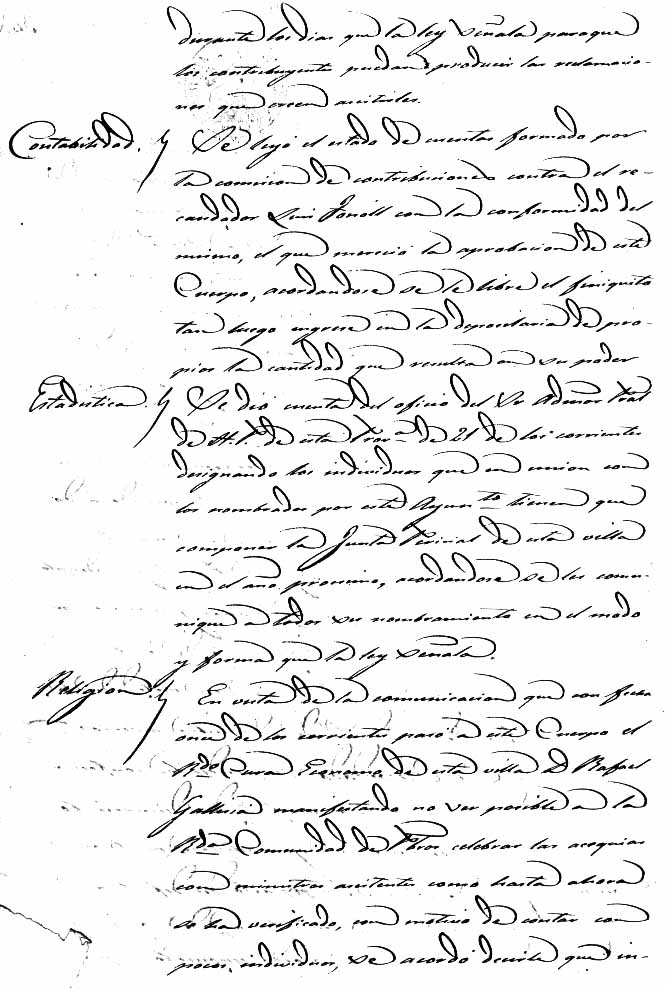 durante los dias que la ley señala para que
los contribuyentes puedan producir las reclamacio-
nes que crean asistirles.
Contabilidad. Se leyó el estado de cuentas formado por
la comision de contribuciones contra el re-
caudador Luis Fonoll con la conformidad del
mismo, el que mereció la aprobacion de este
Cuerpo, acordandose se le libre el finiquito
tan luego ingrese en la depositaria de pro-
pios la cantidad que resulta en su poder
Estadistica. Se dió cuenta del oficio del Sr Admor Pral
de H. P. de esta Prova de 21 de los corrientes
designando los individuos que en union con
los nombrados por este Ayunto tienen que
componer la Junta Pericial de esta villa
en el año procsimo, acordandose se les comu-
nique a todos su nombramiento en el modo
y forma que la ley señala.
Religion. En vista de la comunicacion que con fecha
once de los corrientes pasó a este Cuerpo el
Rdo Cura Economo de esta villa D. Rafael
manifestando no ser posible a la
Rda Comunidad de Pbros celebrar las acequias
con ministros asistentes como hasta ahora
se ha verificado, con motivo de contar con
pocos individuos, se acordó decirle que in-